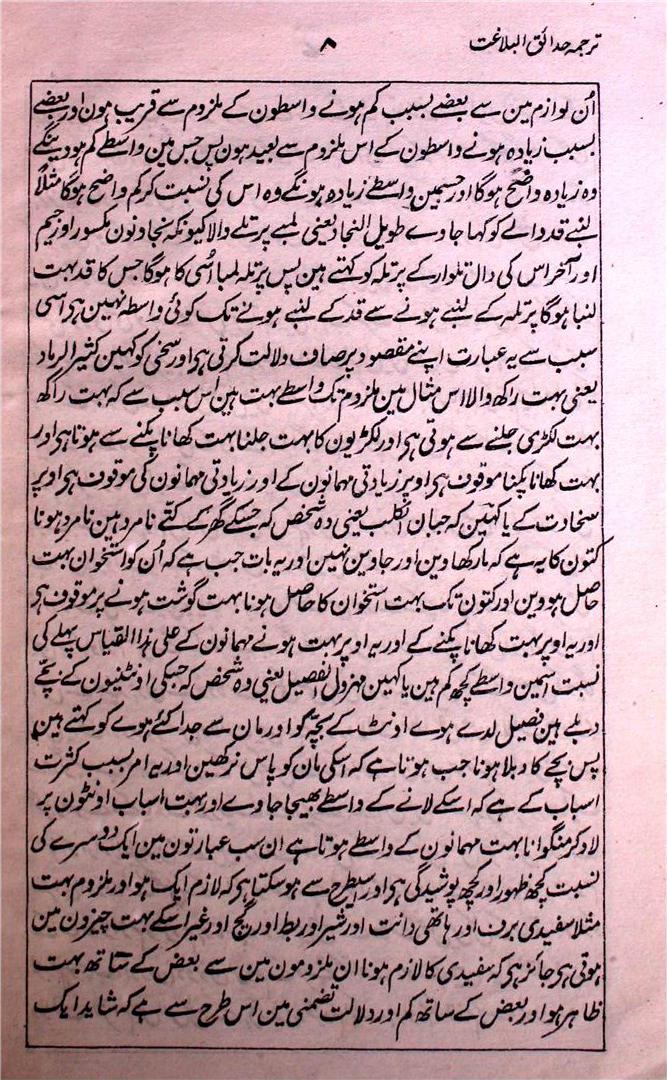 ترجمہ حدائق البلاغت
۸
اُن لوازم مین سے بعضے بسبب کم ہونے واسطون کے ملزوم سے قریب ہون اور بعضے
بسبب زیادہ ہونے واسطون کے اس ملزوم سے بعید ہون پس جس مین واسطے کم ہووینگے
وہ زیادہ واضح ہوگا اور جسمین واسطے زیادہ ہونگے وہ اس کی نسبت کر کم واضح ہوگا مثلاً
لنبے قد والے کو کہا جاوے طویل النجاد یعنی لمبے پرتلے والا کیونکہ نجاد نون مکسور اور جیم
اور آخر اس کی دال تلوار کے پرتلہ کو کہتے ہین پس پرتلہ لمبا اُسی کا ہوگا جس کا قد بہت
لنبا ہوگا پرتلہ کے لنبے ہونے سے قد کے لنبے ہونے تک کوئی واسطہ نہین ہی اسی
سبب سے یہ عبارت اپنے مقصود پر صاف دلالت کرتی ہی اور سخی کو کہین کثیر الرماد
یعنی بہت راکھ والا اس مثال مین ملزوم تک واسطے بہت ہین اس سبب سے کہ بہت راکھ
بہت لکڑی جلنے سے ہوتی ہی اور لکڑیون کا بہت جلنا بہت کھانا پکنے سے ہوتا ہی اور
بہت کھانا پکنا موقوف ہی اوپر زیادتی مہمانون کے اور زیادتی مہمانون کی موقوف ہی اوپر
سخاوت کے یا کہین کہ جبان الکلب یعنی وہ شخص کہ جسکے گھر کے کتے نامرد ہین نامرد ہونا
کتون کا یہ ہے کہ مار کھاوین اور جاوین نہین اور یہ بات جب ہے کہ اُن کو استخوان بہت
حاصل ہووین اور کتون تک بہت استخوان کا حاصل ہونا بہت گوشت ہونے پر موقوف ہی
اور یہ اوپر بہت کھانا پکنے کے اور یہ اوپر بہت ہونے مہمانون کے علی ہذا القیاس پہلے کی
نسبت اسمین واسطے کچھ کم ہین یا کہین مہزول الفصیل یعنی وہ شخص کہ جسکی اونٹنیون کے بچے
دبلے ہین فصیل لدے ہوے اونٹ کے بچہ کو اور مان سے جدا کئے ہوے کو کہتے ہین
پس بچے کا دبلا ہونا جب ہوتا ہے کہ اسکی مان کو پاس نرکھین اور یہ امر بسبب کثرت
اسباب کے ہے کہ اسکے لانے کے واسطے بھیجا جاوے اور بہت اسباب اونٹون پر
لاد کر منگوانا بہت مہمانون کے واسطے ہوتا ہے ان سب عبارتون مین ایک دوسرے کی
نسبت کچھ ظہور اور کچھ پوشیدگی ہی اور اسیطرح سے ہو سکتا ہی کہ لازم ایک ہو اور ملزوم بہت
مثلاً سفیدی برف اور ہاتھی دانت اور شیر اور بط اور گچ اور غیر اسکے بہت چیزون مین
ہوتی ہی جائز ہی کہ سفیدی کا لازم ہونا ان ملزومون مین سے بعض کے ساتھ بہت
ظاہر ہو اور بعض کے ساتھ کم اور دلالت تضمنی مین اس طرح سے ہے کہ شاید ایک